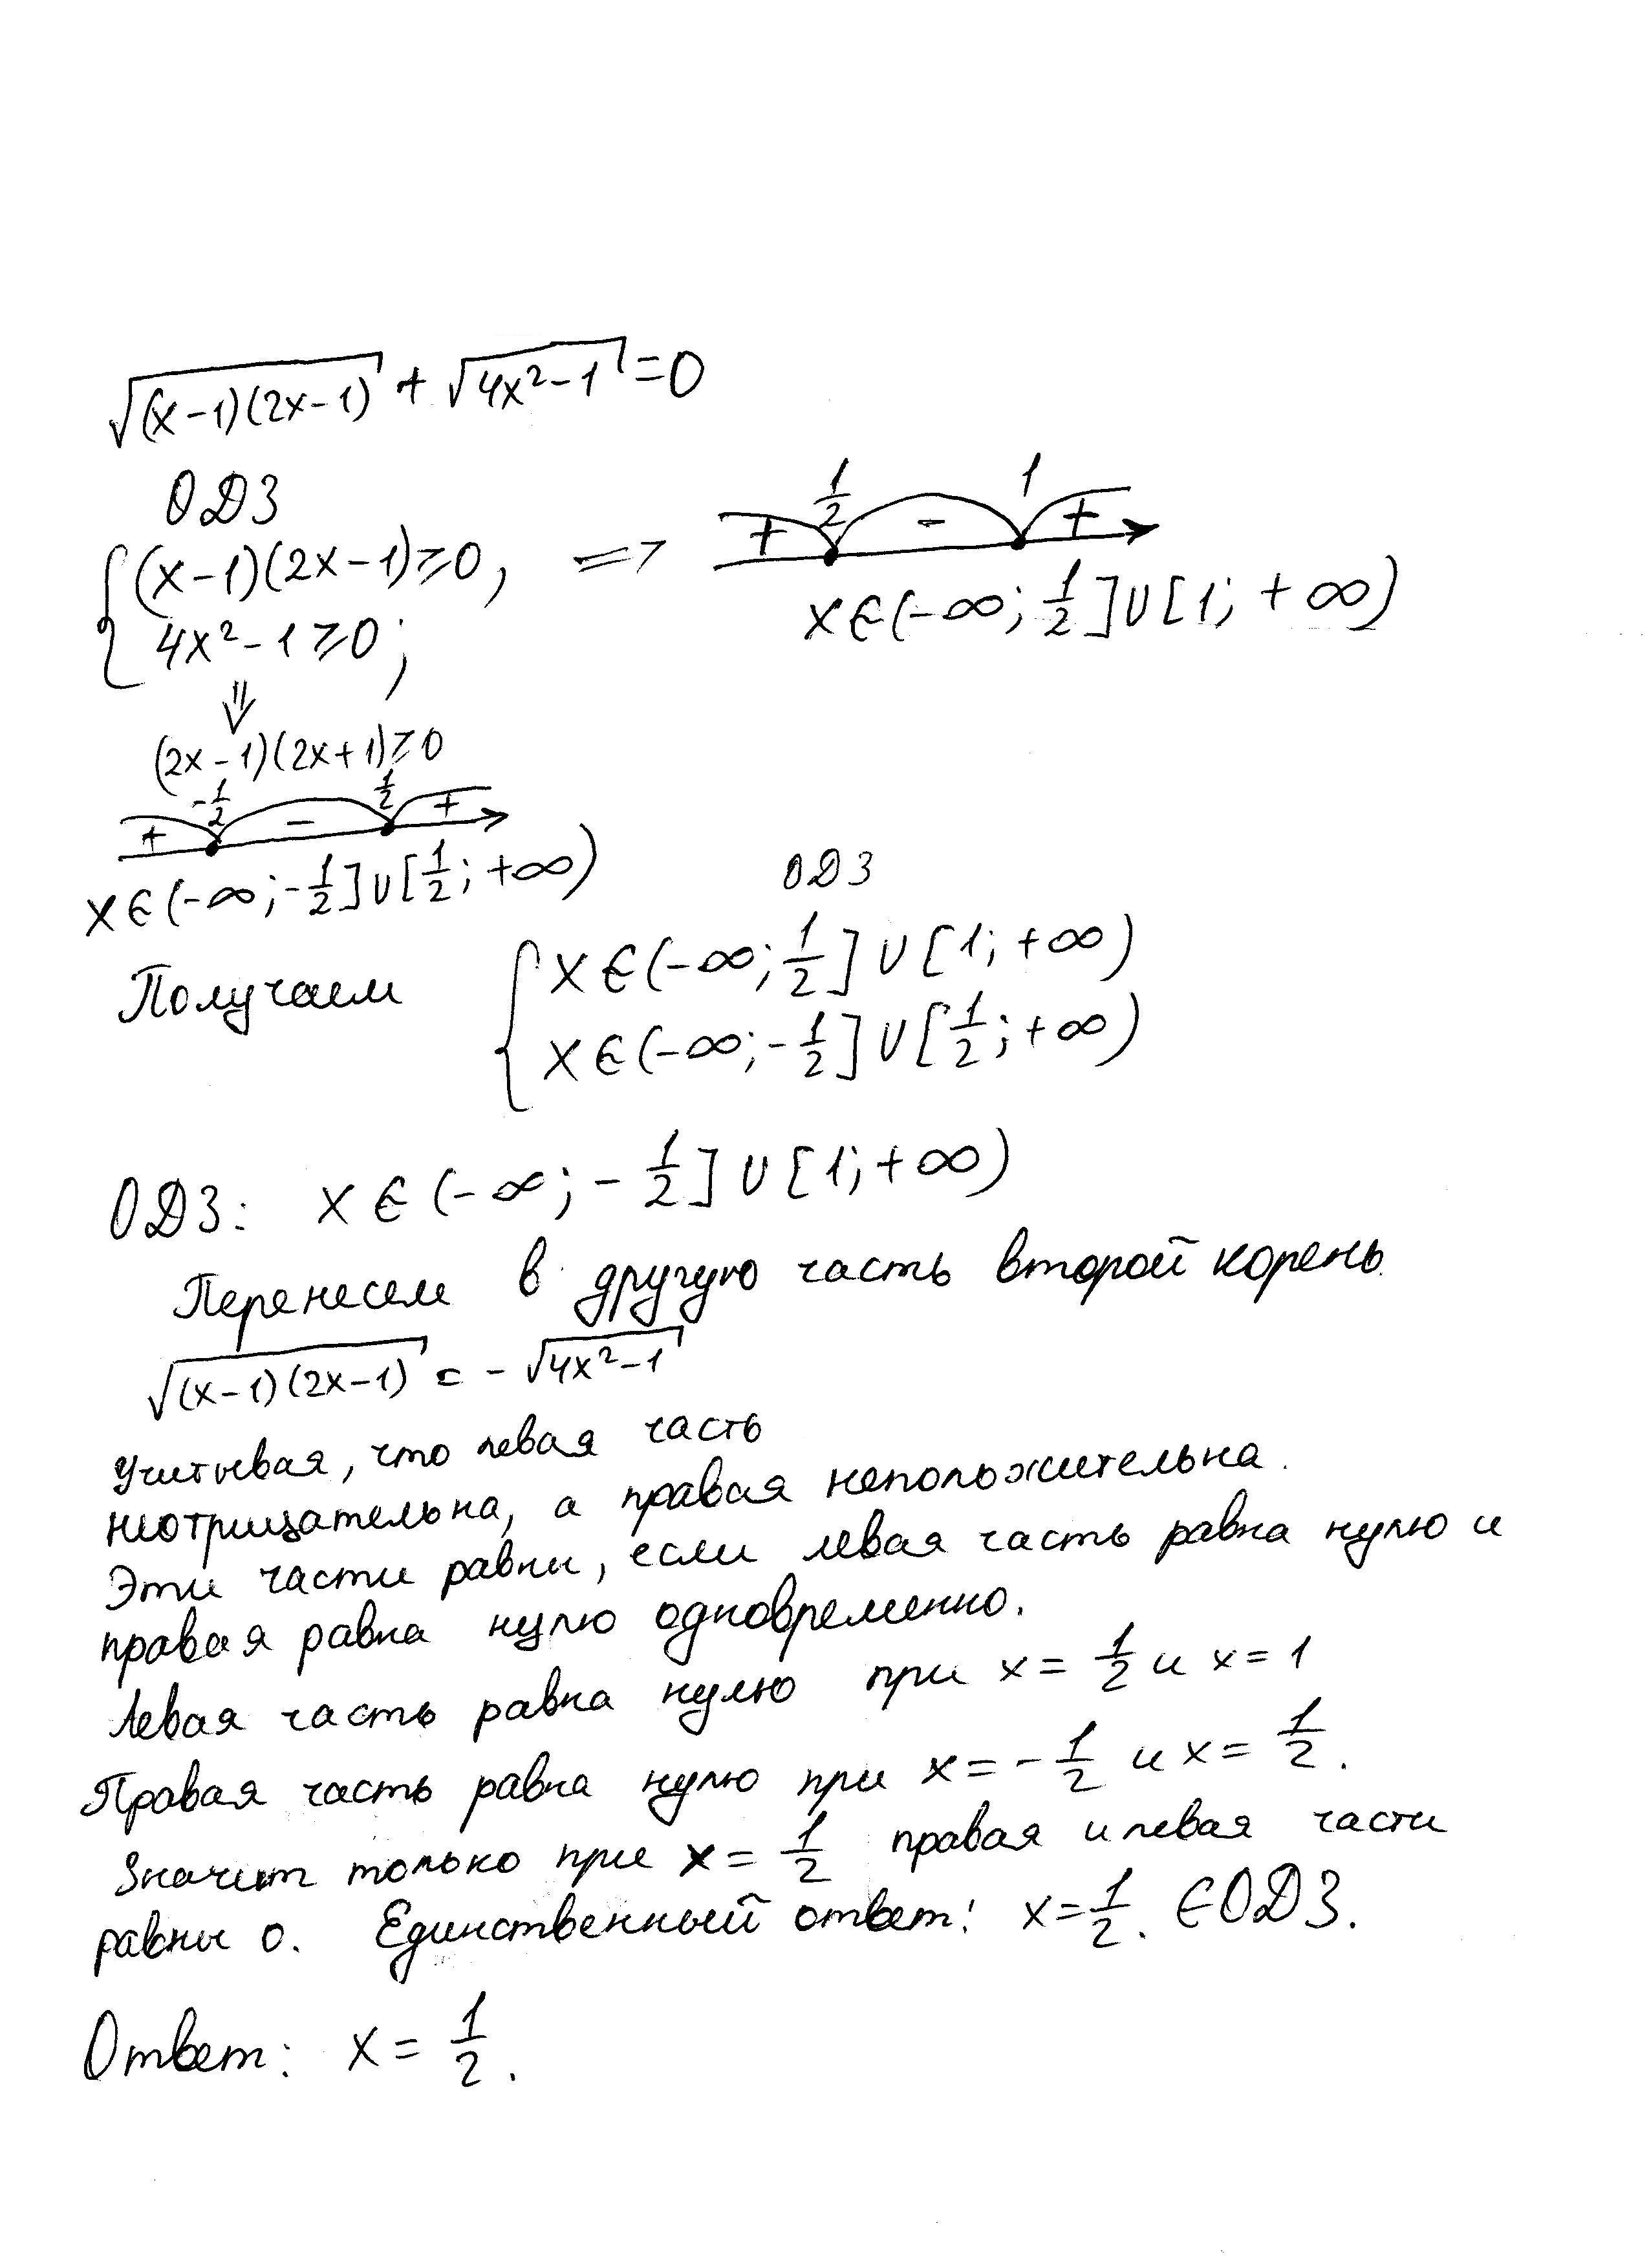 √(x-1)(2x-1) + √4x²-1 = 0
ОДЗ
{ (x-1)(2x-1)≥0, =>
4x²-1≥0;
+ 1/2 - 1 +
x∈(-∞; 1/2]∪[1; +∞)
⇓
(2x-1)(2x+1)≥0
+ -1/2 - 1/2 +
x∈(-∞; -1/2]∪[1/2; +∞)
ОДЗ
Получаем { x∈(-∞; 1/2]∪[1; +∞)
x∈(-∞; -1/2]∪[1/2; +∞)
ОДЗ: x∈(-∞; -1/2]∪[1; +∞)
Перенесем в другую часть второй корень.
√(x-1)(2x-1) = -√4x²-1
Учитывая, что левая часть
неотрицательна, а правая неположительна.
Эти части равны, если левая часть равна нулю и
правая равна нулю одновременно.
Левая часть равна нулю при x = 1/2 и x = 1
Правая часть равна нулю при x = -1/2 и x = 1/2.
Значит только при x = 1/2 правая и левая части
равны 0. Единственный ответ: x = 1/2. ∈ОДЗ.
Ответ: x = 1/2.